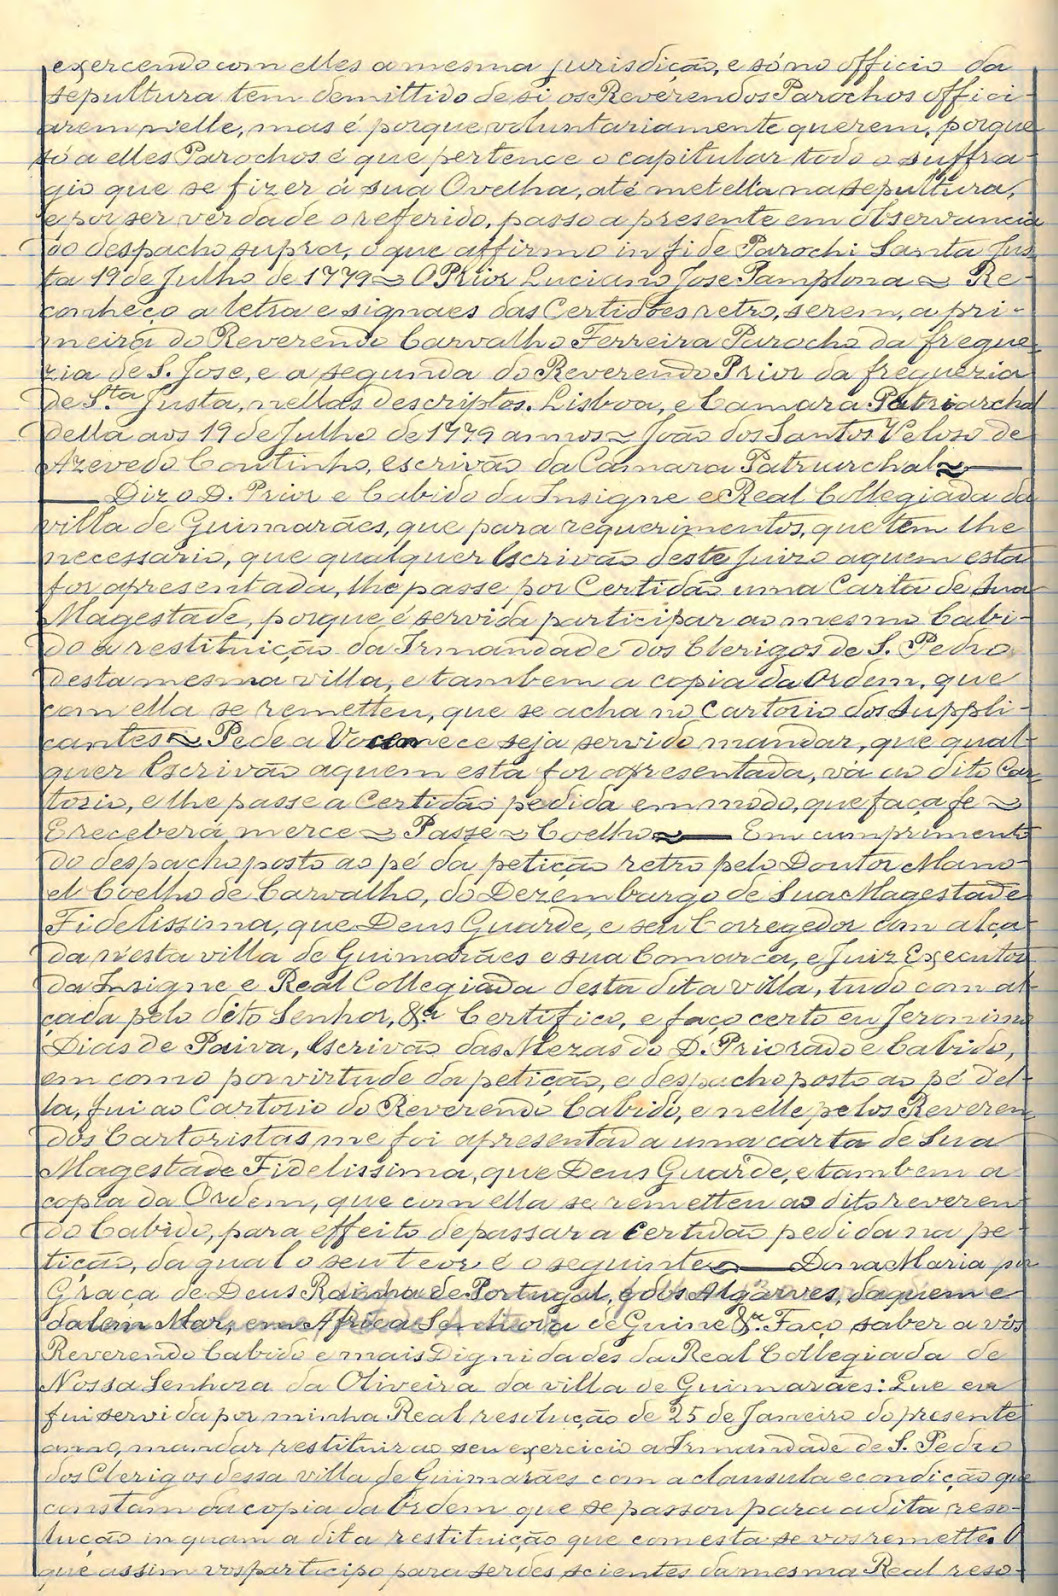 exercendo com elles a mesma jurisdição, e só no officio da
sepultura tem demittido de si os Reverendos Parochos offici-
arem n'elle, mas é porque voluntariamente querem, porque
só a elles Parochos é que pertence o capitular todo o suffra-
gio que se fizer á sua Ovelha, até mettel-a na sepultura,
e por ser verdade o referido, passo a presente em observancia
do despacho supra, o que affirmo in fide Parochi Santa Jus-
ta 19 de Julho de 1779 ~ O Prior Luciano Jose Pamplona ~ Re-
conheço a letra e signaes das Certidões retro, serem, a pri-
meira do Reverendo Carvalho Ferreira Parocho da fregue-
zia de S. Jose, e a segunda do Reverendo Prior da freguezia
de S.ta Justa, nellas descriptos. Lisboa, e Camara Patriarchal
della aos 19 de Julho de 1779 annos ~ João dos Santos Veloso de
Azevedo Coutinho, escrivão da Camara Patriarchal ~ —
— Diz o D. Prior e Cabido da Insigne e Real Collegiada da
villa de Guimarães, que para requerimentos, que tem lhe
necessario, que qualquer Escrivão deste Juizo aquem esta
for apresentada, lhe passe por Certidão uma Carta de Sua
Magestade, porque é servida participar ao mesmo Cabi-
do a restituição da Irmandade dos Clerigos de S. Pedro
desta mesma villa, e tambem a copia da Ordem, que
com ella se remetteu, que se acha no Cartorio dos Suppli-
cantes ~ Pede a Vossemece seja servido mandar, que qual-
quer Escrivão aquem esta for apresentada, vá ao dito Car-
torio, e lhe passe a Certidão pedida em modo, que faça fe ~
E receberá merce ~ Passe ~ Coelho ~ — Em cumprimento
do despacho posto ao pé da petição retro pelo Doutor Mano-
el Coelho de Carvalho, do Dezembargo de Sua Magestade
Fidelissima, que Deus Guarde, e seu Corregedor com alça-
da n'esta villa de Guimarães e sua Comarca, e Juiz Executor
da Insigne e Real Collegiada desta dita villa, tudo com al-
çada pelo dito Senhor, &a Certifico, e faço certo eu Jeronimo
Dias de Paiva, Escrivão das Mezas do D. Priorado e Cabido,
em como por virtude da petição, e despacho posto ao pé del-
la, fui ao Cartorio do Reverendo Cabido, e nelle pelos Reveren-
dos Cartoristas me foi apresentada uma carta de Sua
Magestade Fidelissima, que Deus Guarde, e tambem a
copia da Ordem, que com ella se remetteu ao dito reveren-
do Cabido, para effeito de passar a Certidão pedida na pe-
tição, da qual o seu teor é o seguinte ~ — Dona Maria por
Graça de Deus Rainha de Portugal, e dos Algarves, daquem e
dalem Mar, em Africa Senhora de Guiné &a. Faço saber a vós
Reverendo Cabido e mais Dignidades da Real Collegiada de
Nossa Senhora da Oliveira da villa de Guimarães: Que eu
fui servida por minha Real resolução de 25 de Janeiro do presente
anno, mandar restituir ao seu exercicio a Irmandade de S. Pedro
dos Clerigos dessa villa de Guimarães com a clausula e condição que
constam da copia da Ordem que se passou para a dita reso-
lução in quam a dita restituição que com esta se vos remette. O
que assim vos participo para serdes scientes da mesma Real reso-